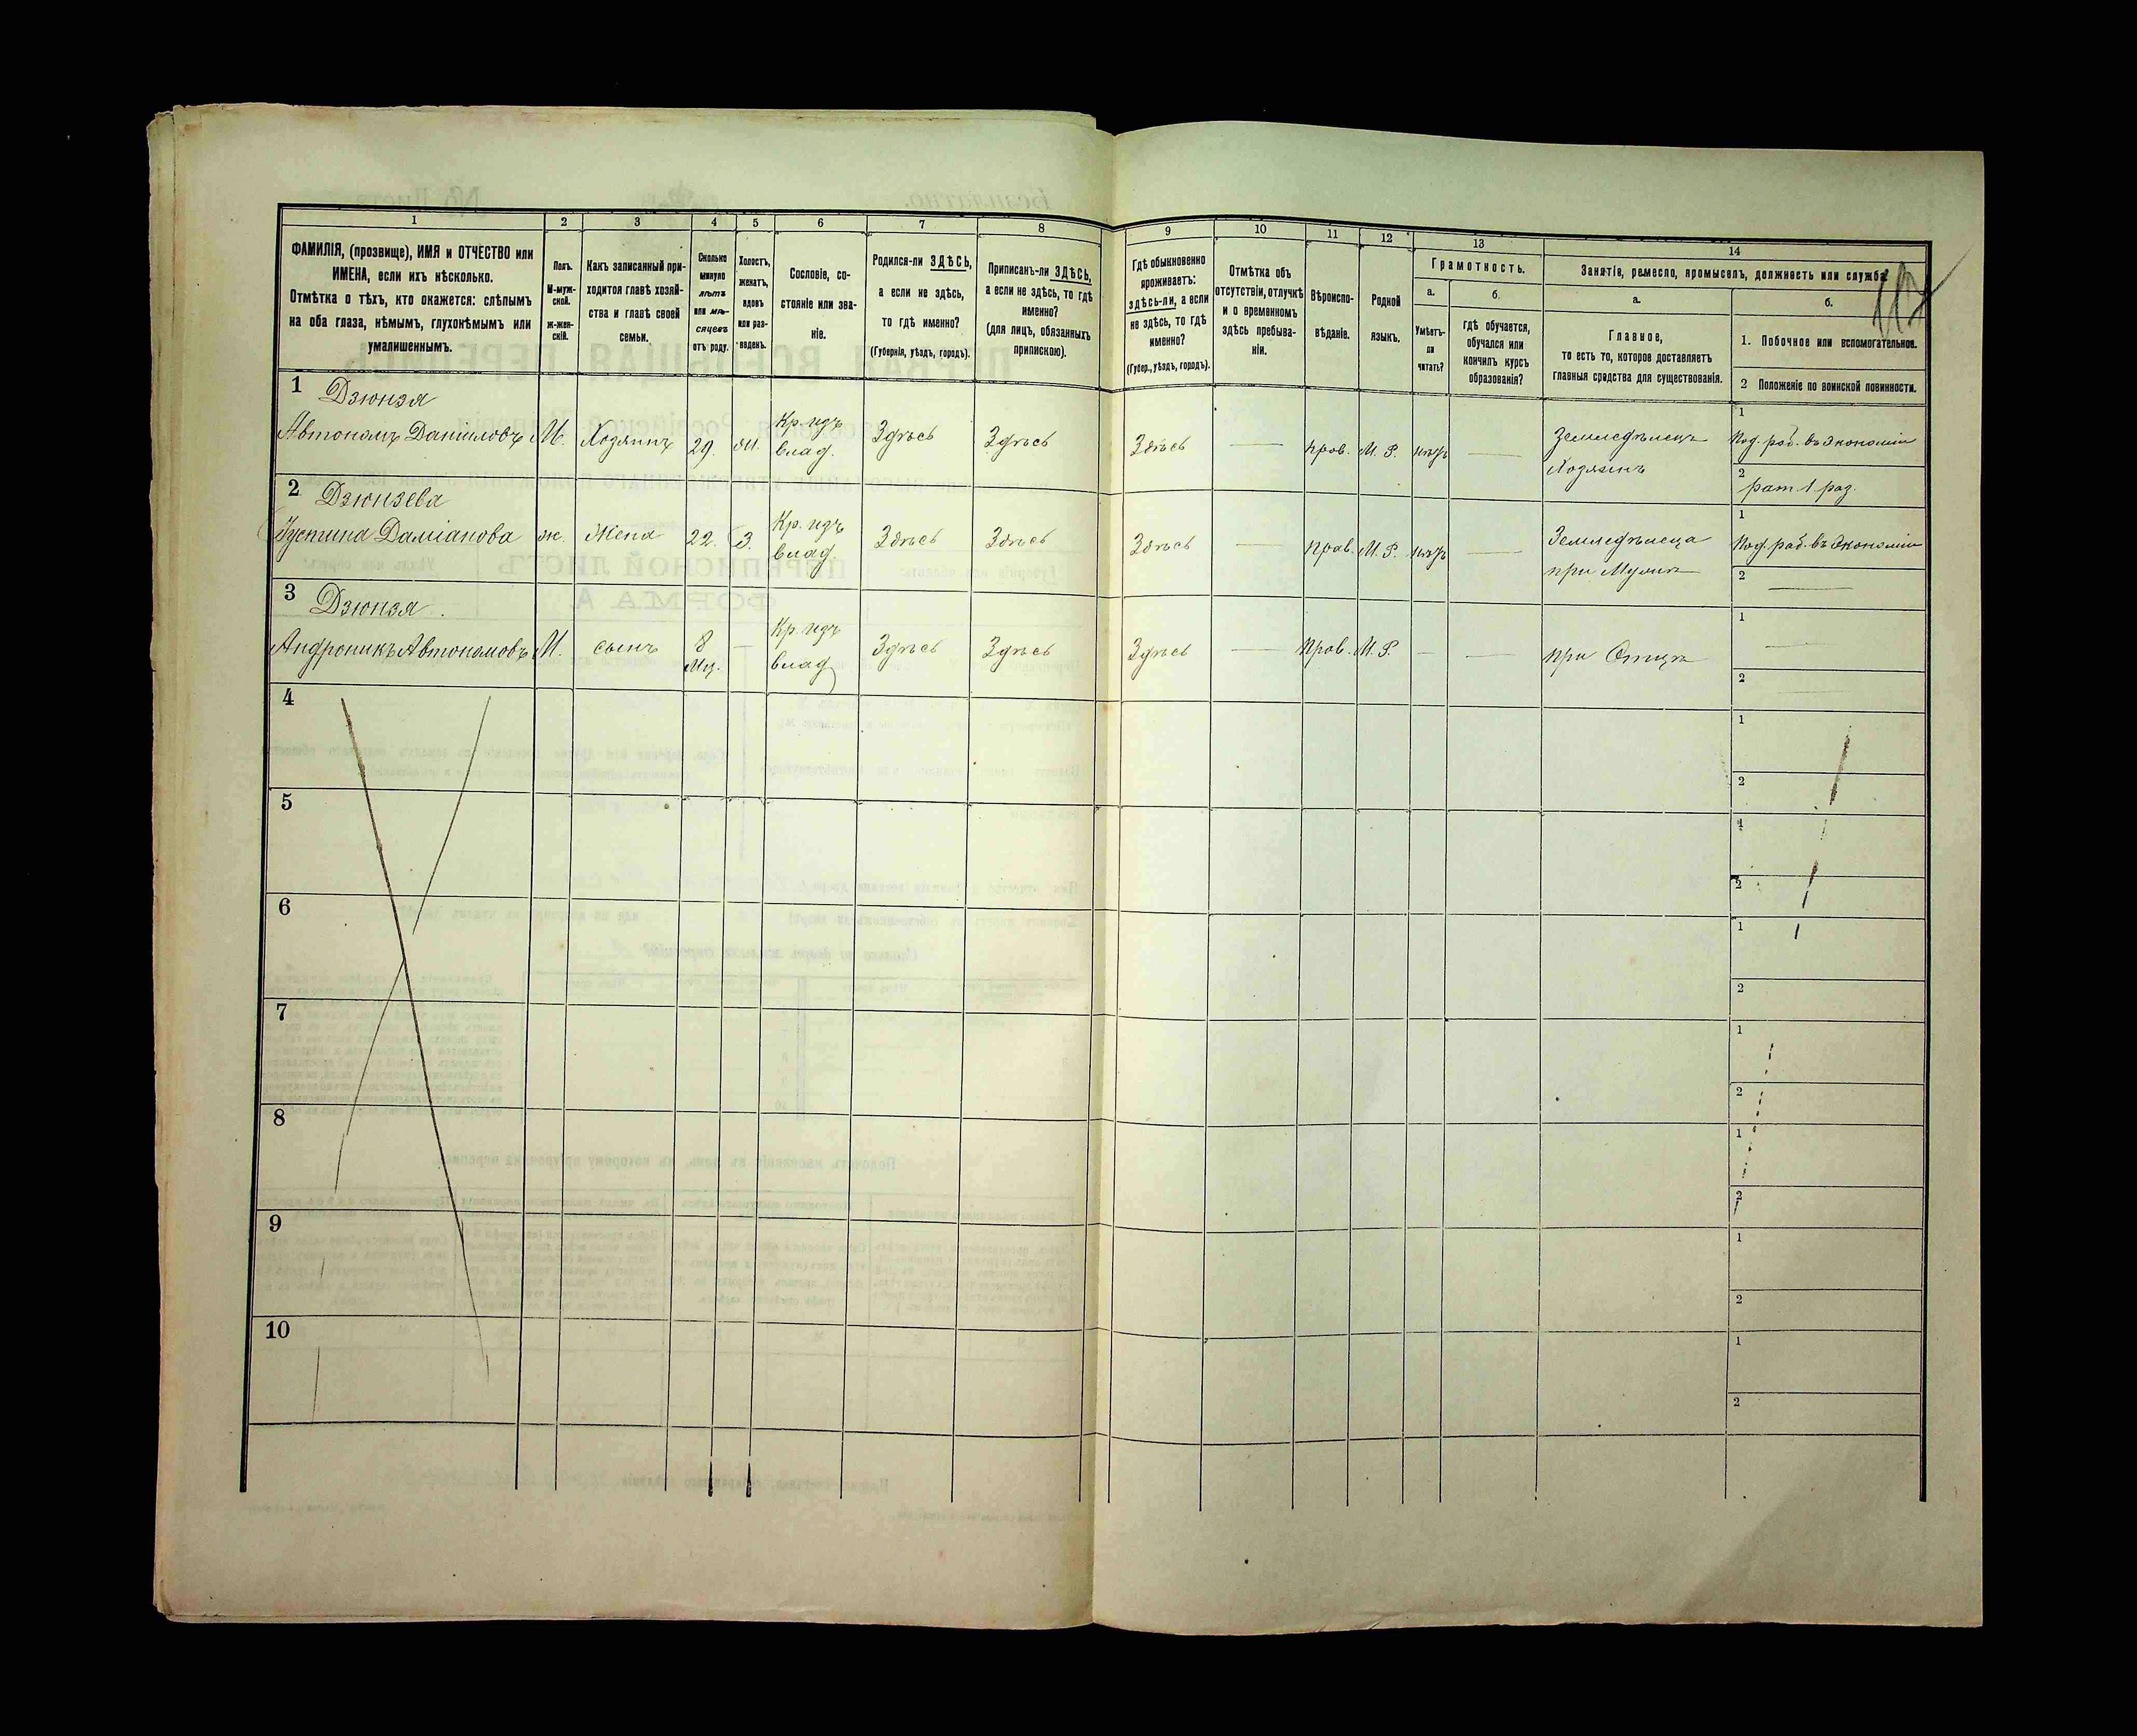 1
2
3
4
5
6
7
8
9
10
11
12
13
14
ФАМИЛІЯ, (прозвище), ИМЯ и ОТЧЕСТВО или
ИМЕНА, если ихъ нѣсколько.
Отмѣтка о тѣхъ, кто окажется: слѣпымъ
на оба глаза, нѣмымъ, глухонѣмымъ или
умалишеннымъ.
Полъ.
М-муж-
ской.
ж-жен-
скій.
Какъ записанный при-
ходится главѣ хозяй-
ства и главѣ своей
семьи.
Сколько
минуло
лѣтъ
или мѣ-
сяцевъ
отъ роду.
Холостъ,
женатъ,
вдовъ
или раз-
веденъ.
Сословіе, со-
стояніе или зва-
ніе.
Родился-ли ЗДѢСЬ,
а если не здѣсь,
то гдѣ именно?
(Губернія, уѣздъ, городъ).
Приписанъ-ли ЗДѢСЬ,
а если не здѣсь, то гдѣ
именно?
(для лицъ, обязанныхъ
припискою).
Гдѣ обыкновенно
проживаетъ:
здѣсь-ли, а если
не здѣсь, то гдѣ
именно?
(Губер., уѣздъ, городъ).
Отмѣтка объ
отсутствіи, отлучкѣ
и о временномъ
здѣсь пребыва-
ніи.
Вѣроиспо-
вѣданіе.
Родной
языкъ.
Грамотность.
а.
б.
Умѣетъ-
ли
читать?
гдѣ обучается,
обучался или
кончилъ курсъ
образованія?
Занятіе, ремесло, промыселъ, должность или служба.
а.
б.
Главное,
то есть то, которое доставляетъ
главныя средства для существованія.
1. Побочное или вспомогательное.
2 Положеніе по воинской повинности.
1 Дзюнзя
Автономъ Даниловъ М. Хозяинъ 29. Ж. Кр. изъ влад. Здѣсь Здѣсь Здѣсь — прав. М. Р. нѣтъ — Земледѣлецъ Хозяинъ
1 Под. раб. въ экономіи
2 рат. 1 раз.
2 Дзюнзева
Устина Даміанова ж. Жена 22. З. Кр. изъ влад. Здѣсь Здѣсь Здѣсь — прав. М. Р. нѣтъ — Земледѣлеца при Мужѣ
1 Под. раб. въ экономіи
2 —
3 Дзюнзя.
Андроникъ Автономовъ М. сынъ 8 Мц. — Кр. изъ влад. Здѣсь Здѣсь Здѣсь — прав. М. Р. — — при Отцѣ
1 —
2 —
4
1
2
5
1
2
6
1
2
7
1
2
8
1
2
9
1
2
10
1
2